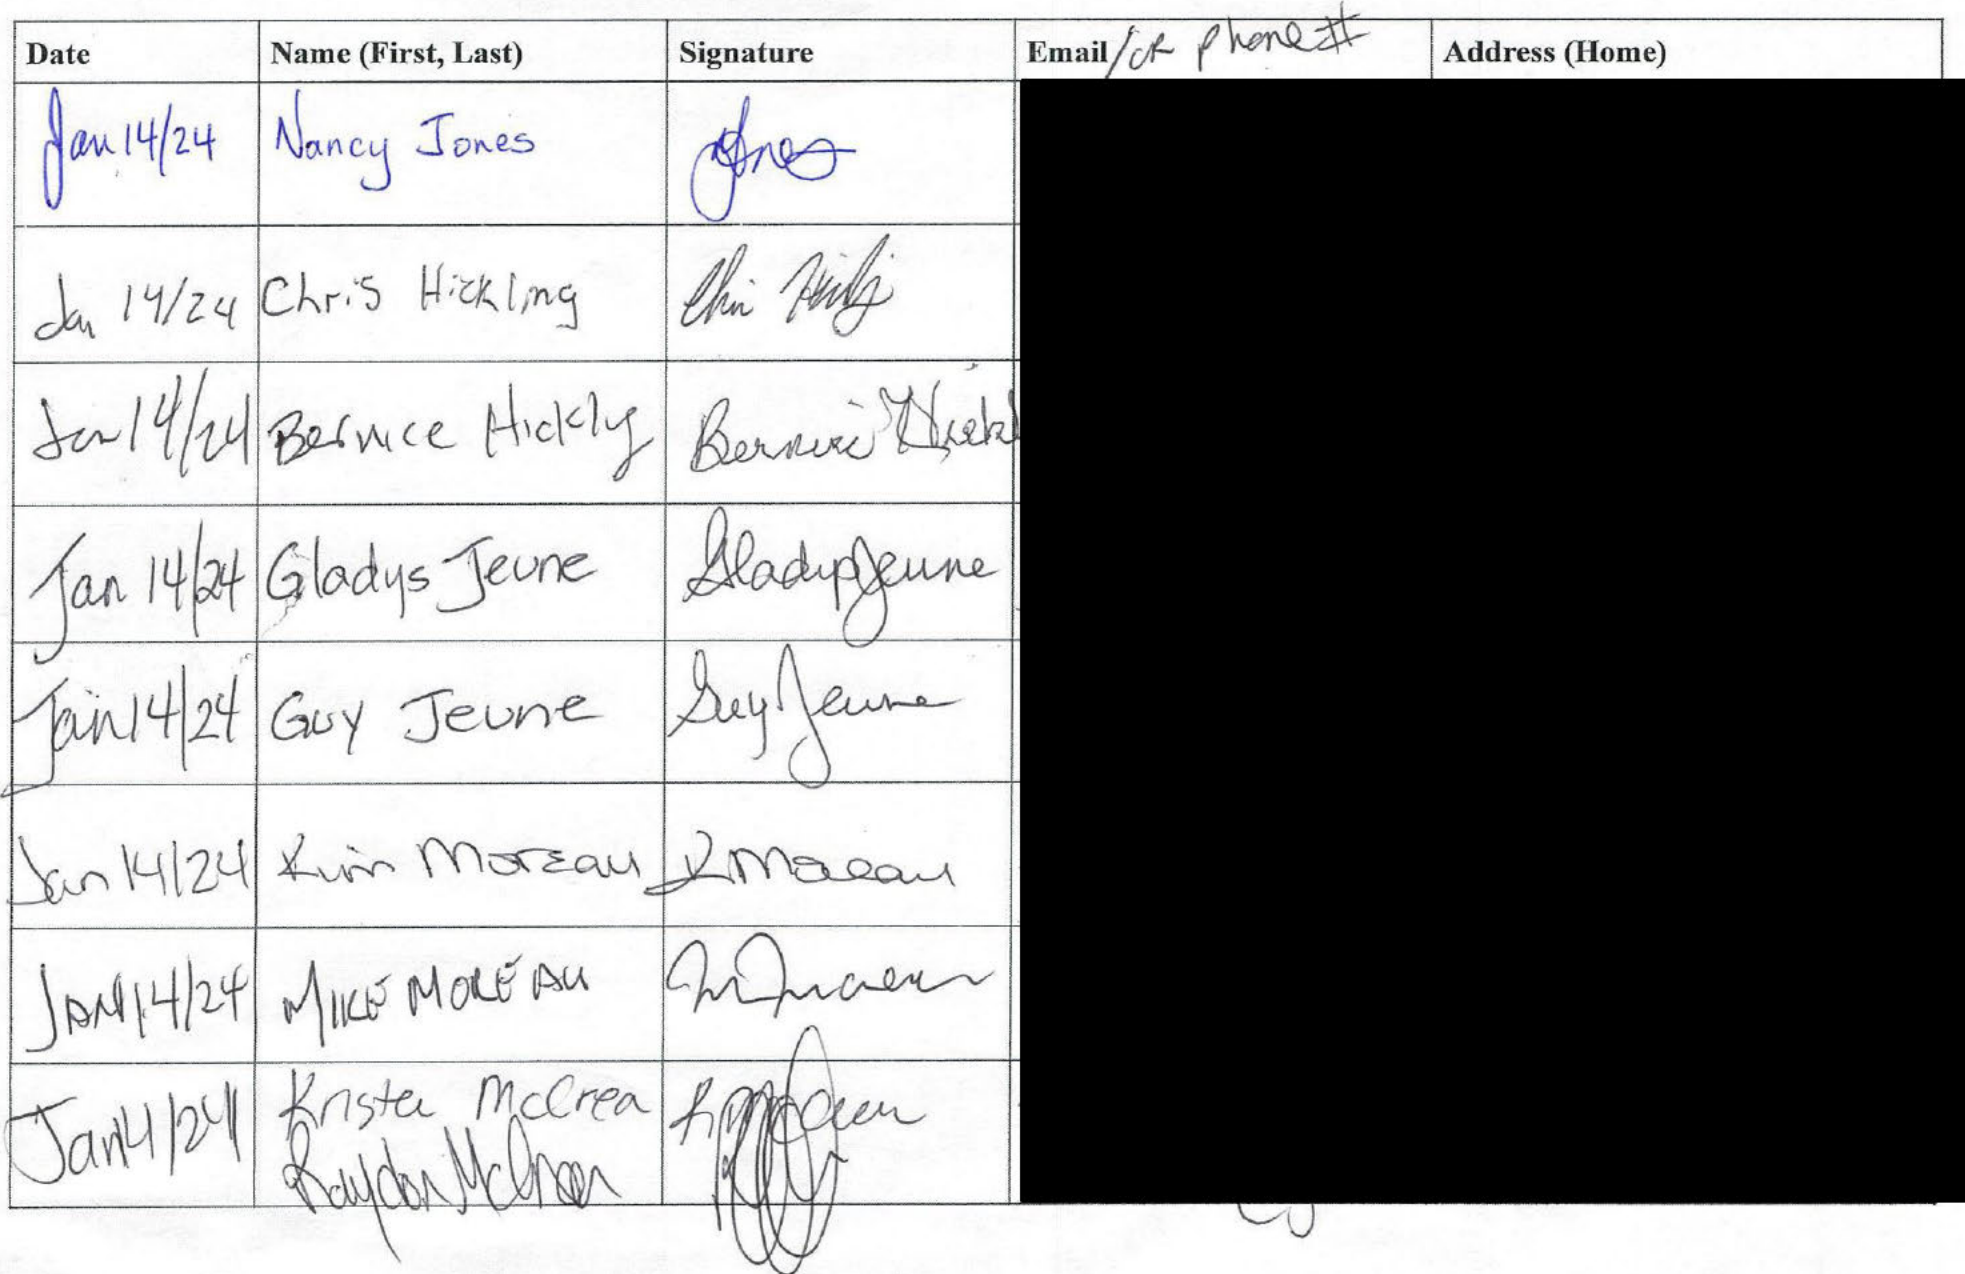 Date Name (First, Last) Signature Email /or phone # Address (Home)
Jan 14/24 Nancy Jones Jones
Jan 14/24 Chris Hickling Chris
Jan 14/24 Bernice Hickly Bernice
Jan 14/24 Gladys Jeune Gladys Jeune
Jan 14/24 Guy Jeune Guy Jeune
Jan 14/24 Kim Moreau K Moreau
JAN 14/24 MIKE MOREAU
Jan 14/24 Krista McCrea
Raydon McCrea